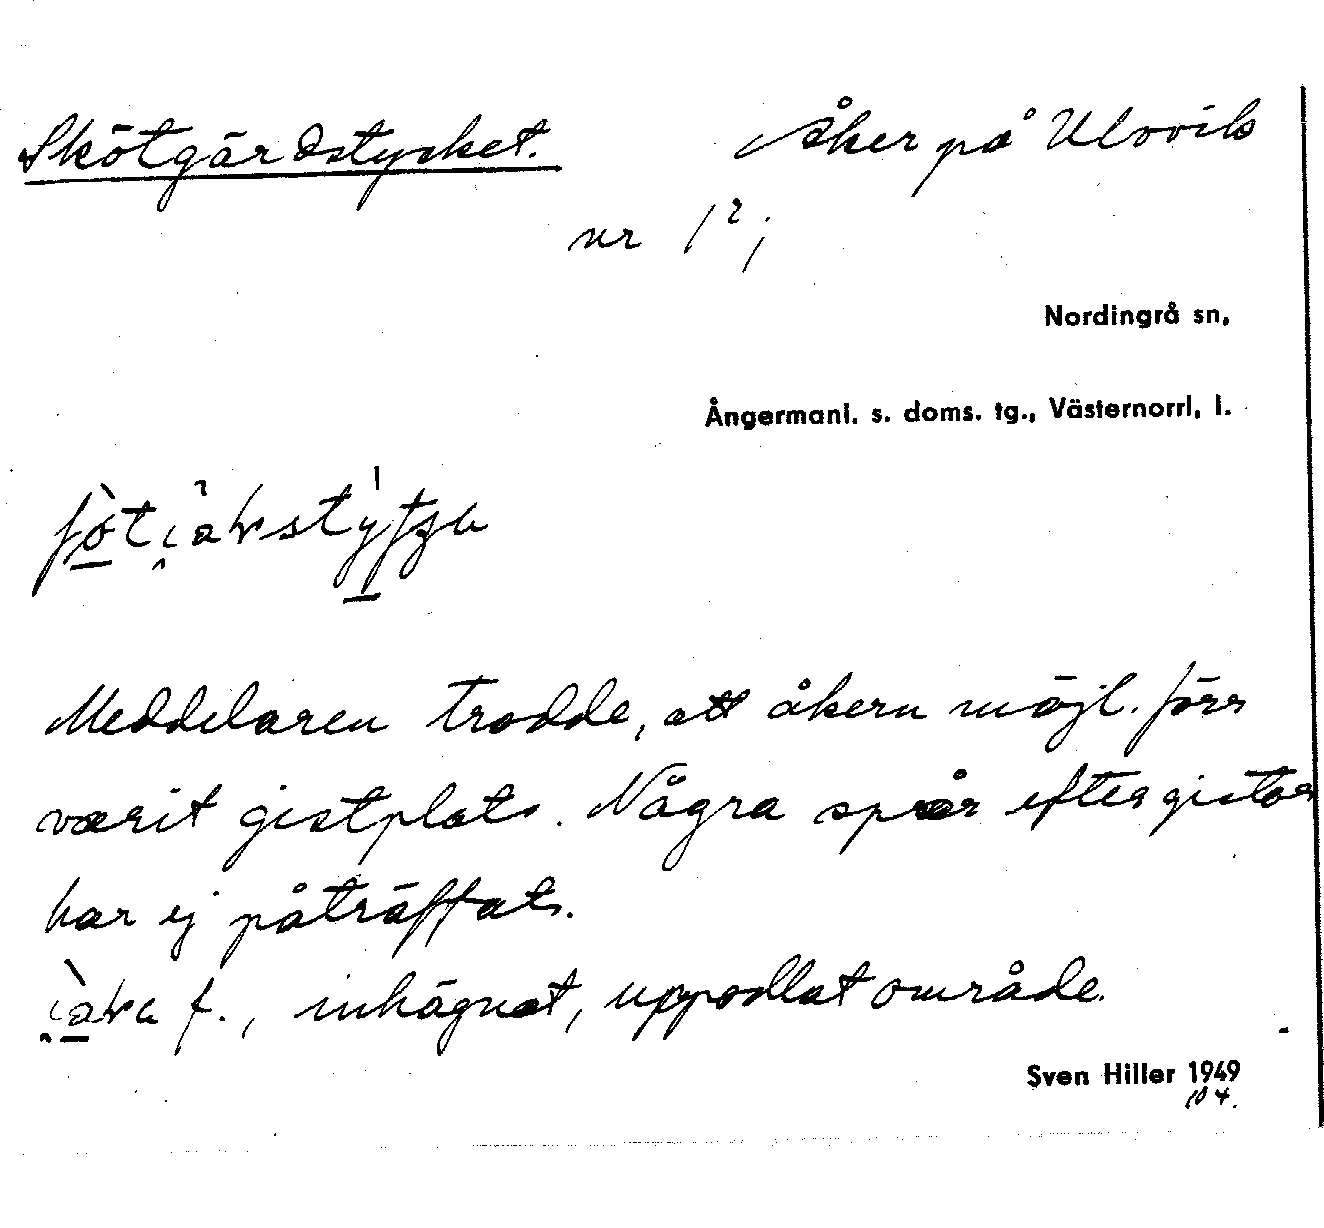 Skötgärdstycket. Åker på Ulvvik
nr 1²;
Nordingrå sn,
Ångermanl. s. doms. tg., Västernorrl. l.
Meddelaren trodde, att åkern möjl. förr
varit gistplats. Några spår efter gistor
har ej påträffats.
f., inhägnat, uppodlat område.
Sven Hiller 1949
104.